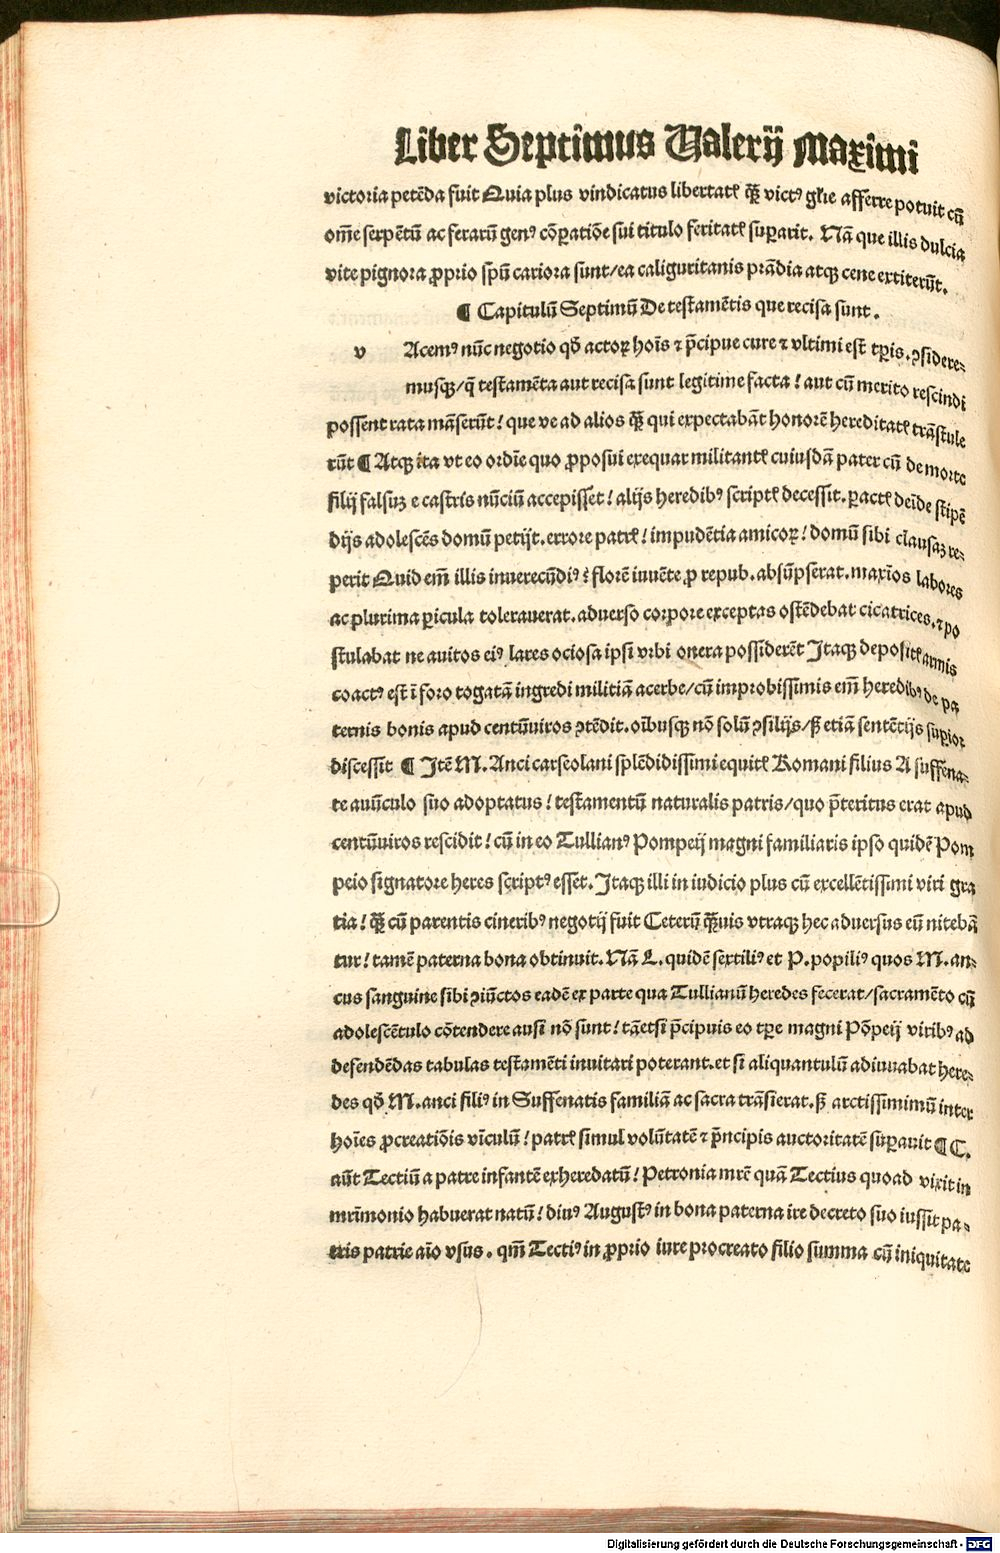 Liber Septimus Valerij Maximi
victoria petēda fuit Quia plus vindicatus libertatꝭ ꝙ̄ꝫ victꝰ gl'ie afferre potuit cū
om̄e serpētū ac ferarū genꝰ cōꝑatiōe sui titulo feritatꝭ suꝑarit. Nā que illis dulcia
vite pignora ꝓprio spū cariora sunt/ea caliguritanis prādia atqꝫ cene extiterūt.
¶ Capitulū Septimū De testamētis que recisa sunt.
v Acemꝰ nūc negotio qđ actoꝝ hoīs ⁊ p̄cipue cure ⁊ vltimi est tꝑis. ꝯsidere⸗
musqꝫ/q̄ testamēta aut recisa sunt legitime facta! aut cū merito rescindi
possent rata māserūt! que ve ad alios ꝙ̄ꝫ qui expectabāt honorē hereditatꝭ trāstule
rūt ¶ Atqꝫ ita vt eo ordīe quo ꝓposui exequar militantꝭ cuiusdā pater cū de morte
filij falsuꝫ e castris nūciū accepisset! alijs heredibꝰ scriptꝭ decessit. ꝑactꝭ deīde stipē
dijs adolescēs domū petijt. errore patrꝭ! impudētia amicoꝝ! domū sibi clausaꝫ re⸗
perit Quid em̄ illis inverecūdiꝰ? florē iuuēte ꝓ repub. absūpserat. maxīos labores
ac plurima ꝑicula tolerauerat. aduerso corpore exceptas ostēdebat cicatrices. ⁊ po
stulabat ne auitos eiꝰ lares ociosa ipsi vrbi onera possiderēt Itaqꝫ depositꝭ armis
coactꝰ est ī foro togatā ingredi militiā acerbe/cū improbissimis em̄ heredibꝰ de pa
ternis bonis apud centūuiros ꝯtēdit. oībusqꝫ nō solū ꝯsilijs/sꝫ etiā sentētijs suꝑior
discessit ¶ Itē M. Anci carseolani splēdidissimi equitꝭ Romani filius A suffena⸗
te auūculo suo adoptatus! testamentū naturalis patris/quo p̄teritus erat apud
centūuiros rescidit! cū in eo Tullianꝰ Pompeij magni familiaris ipso quidē Pom
peio signatore heres scriptꝰ esset. Itaqꝫ illi in iudicio plus cū excellētissimi viri gra
tia! ꝙ̄ꝫ cū parentis cineribꝰ negotij fuit Ceterū ꝙ̄ꝫuis vtraqꝫ hec aduersus eū nitebā
tur! tamē paterna bona obtinuit. Nā L. quidē sextiliꝰ et P. popiliꝰ quos M. an⸗
cus sanguine sibi ꝯiūctos eadē ex parte qua Tullianū heredes fecerat/sacramēto cū
adolescētulo cōtendere ausi nō sunt! tāetsi p̄cipuis eo tꝑe magni Pōpeij viribꝰ ad
defendēdas tabulas testamēti inuitari poterant. et si aliquantulū adiuuabat here⸗
des qđ M. anci filiꝰ in Suffenatis familiā ac sacra trāsierat. sꝫ arctissimimū inter
hoīes ꝓcreatiōis vīculū! patrꝭ simul volūtatē ⁊ p̄ncipis auctoritatē suꝑauit ¶ C.
aūt Tectiū a patre infantē exheredatū! Petronia mrē quā Tectius quoad vixit in
mrīmonio habuerat natū! diuꝰ Augustꝰ in bona paterna ire decreto suo iussit pa⸗
tris patrie aīo vsus. qm̄ Tectiꝰ in ꝓprio iure procreato filio summa cū iniquitate
Digitalisierung gefördert durch die Deutsche Forschungsgemeinschaft - DFG